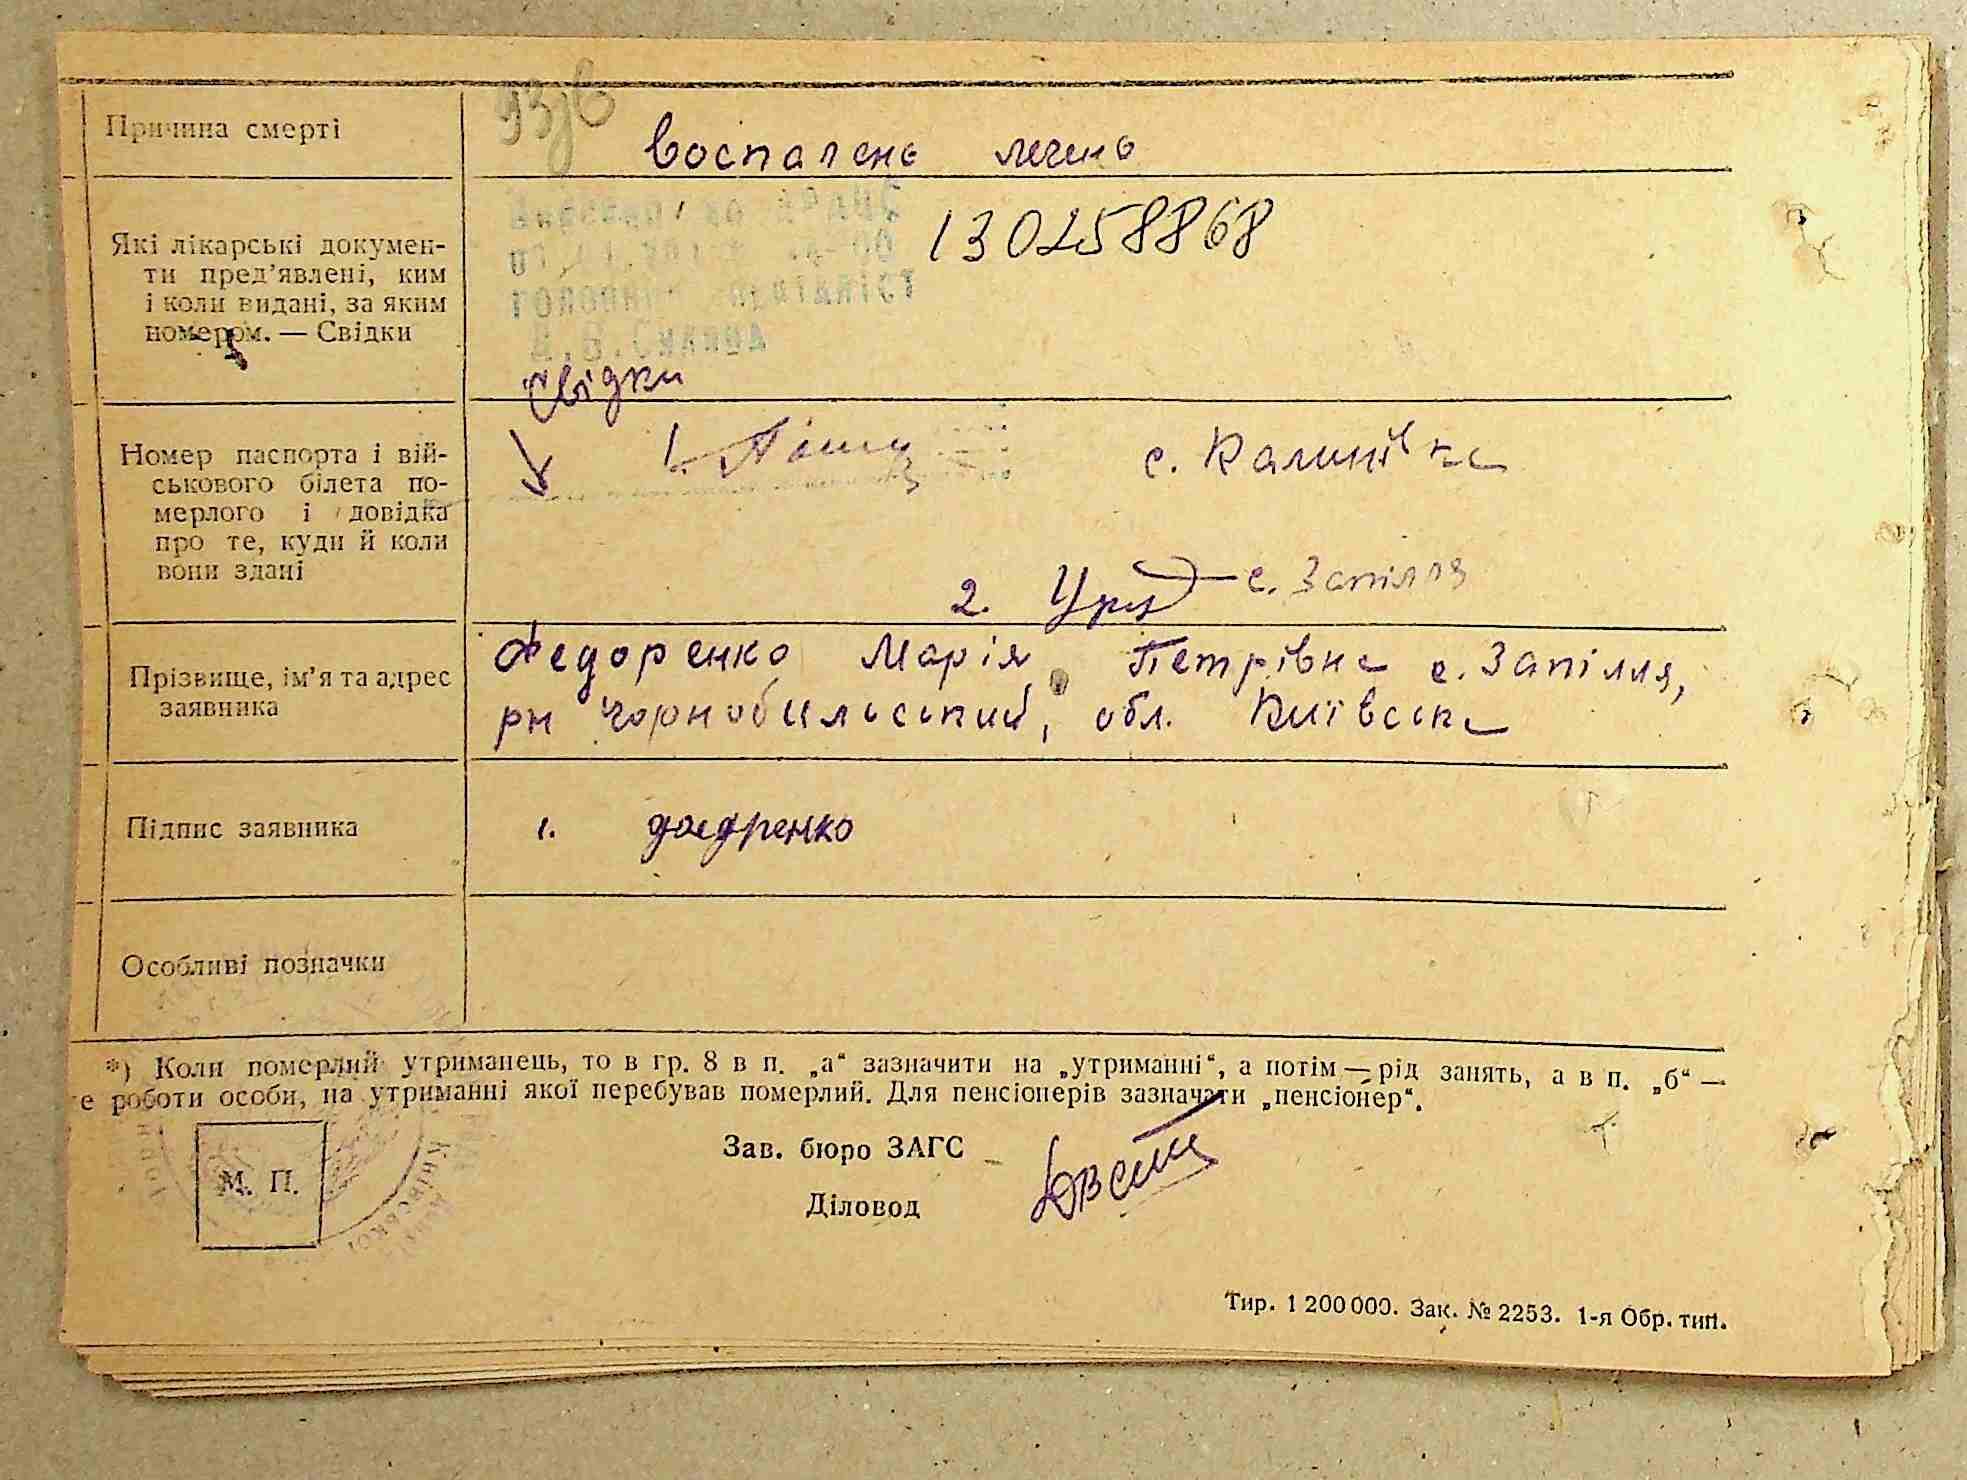 93зв
Причина смерті
воспалень легень
Які лікарські докумен-
ти пред’явлені, ким
і коли видані, за яким
номером. — Свідки
130258868
головний спеціаліст
Свідки
Номер паспорта і вій-
ськового білета по-
мерлого і довідка
про те, куди й коли
вони здані
1. с. Калинівка
2. с. Запілля
Прізвище, ім’я та адрес
заявника
Федоренко Марія Петрівна с. Запілля,
рн Чорнобильський, обл. Київська
Підпис заявника
1. Федренко
Особливі позначки
*) Коли померлий утриманець, то в гр. 8 в п. „а“ зазначити на „утриманні“, а потім — рід занять, а в п. „б“ —
е роботи особи, на утриманні якої перебував померлий. Для пенсіонерів зазначати „пенсіонер“.
М. П.
Київської
Зав. бюро ЗАГС
Діловод
Тир. 1 200 000. Зак. № 2253. 1-я Обр. тип.